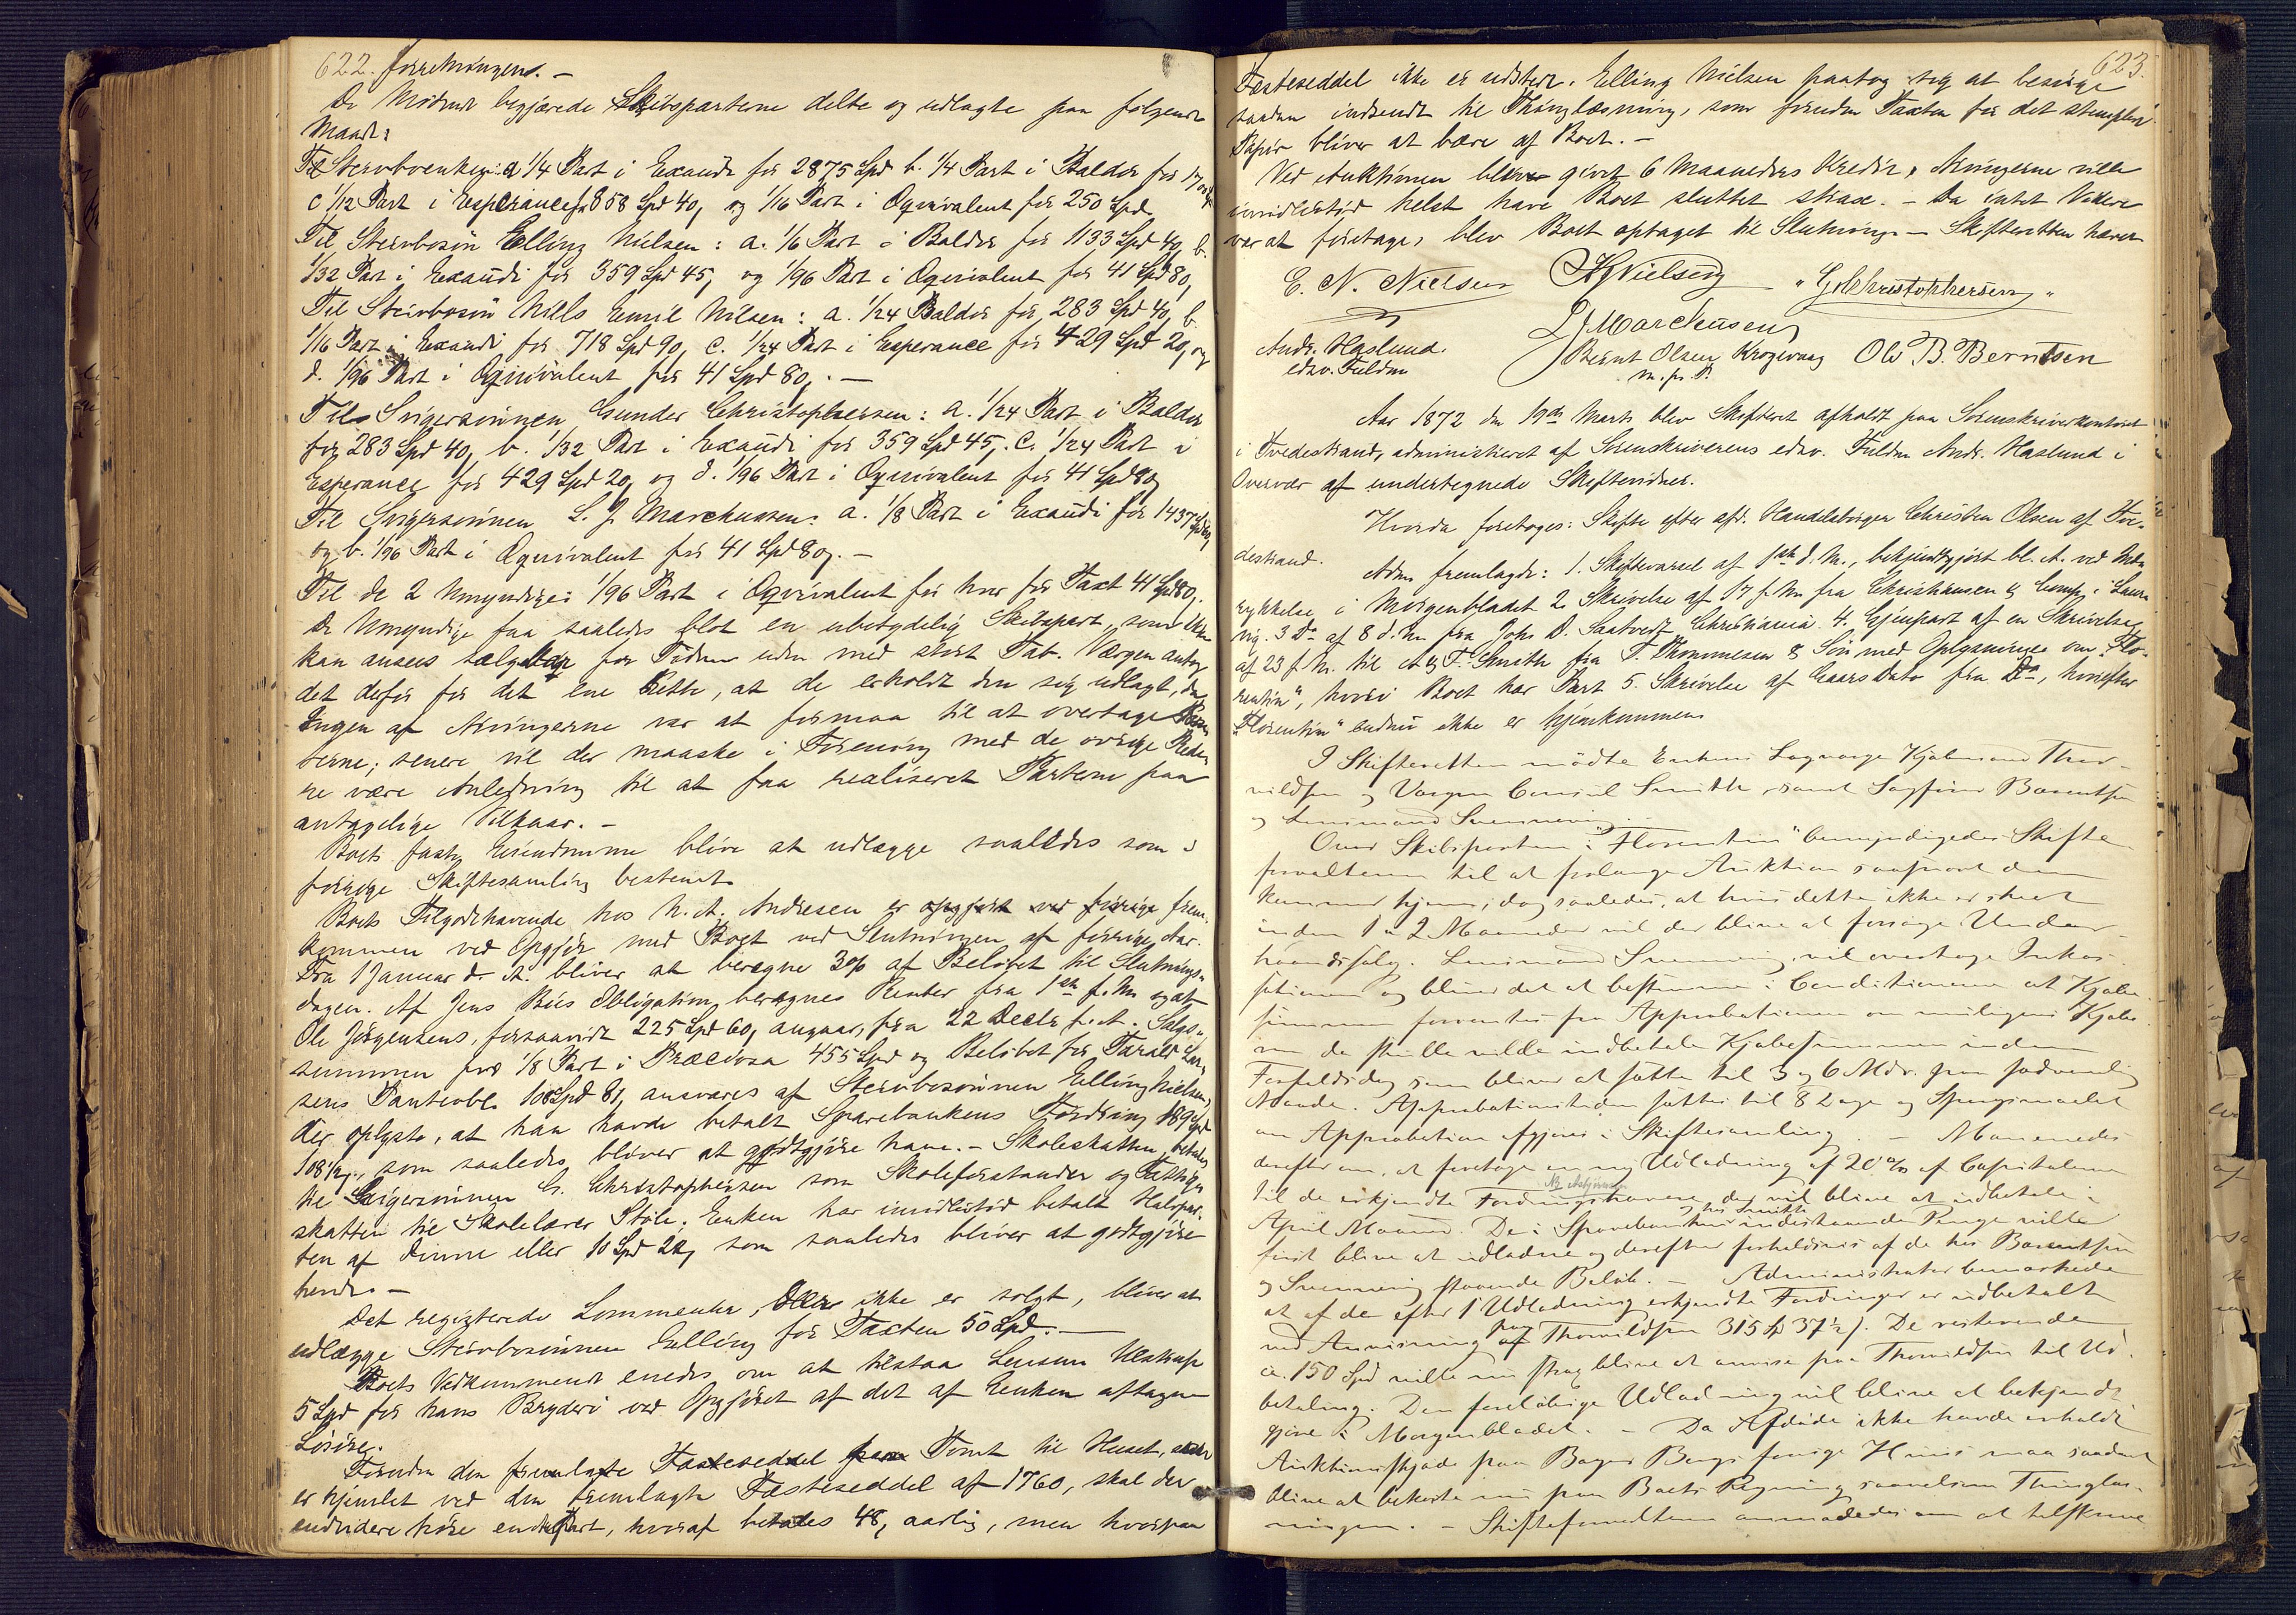 622. forretningen. –
De Mødende begjærede Skibsparterne delte og udlagte paa følgende
Maade:
Til Stervboenken: a 1/4 Part i Exaudi for 2875 Spd b. 1/4 Part i Balder for 1700 Spd
c 1/12 Part i Esperance for 858 Spd 40, og 1/16 Part i Æquivalent for 250 Spd.
Til Stervbosøn Elling Nielsen: a. 1/6 Part i Balder for 1133 Spd 40, b.
1/32 Part i Exaudi for 359 Spd 45, og 1/96 Part i Æquivalent for 41 Spd 80,
Til Stervbosøn Niels Emil Nilsen: a. 1/24 Balder for 283 Spd 40, b.
1/16 Part i Exaudi for 718 Spd 90, c. 1/24 Part i Esperance for 429 Spd 20, og
d. 1/96 Part i Æquivalent for 41 Spd 80,. –
Til Svigersønnen Gunder Christophersen: a. 1/24 Part i Balder
for 283 Spd 40, b. 1/32 Part i Exaudi for 359 Spd 45,. c. 1/24 Part i
Esperance for 429 Spd 20, og d. 1/96 Part i Æquivalent for 41 Spd 80,
Til Svigersønnen L. J. Marchussen: a. 1/8 Part i Exaudi for 1437 Spd 60,
og b. 1/96 Part i Æquivalent for 41 Spd 80,. –
Til de 2 Umyndige: 1/96 Part i Æqvivalent for hver for Taxt 41 Spd 80,.
De Umyndige faa saaledes blot en ubetydelig Skibspart, som ikke
kan ansees sælgelig for Tiden uden med stort Tab. Værgen antog
det derfor for det ene Rette, at de erholdt den sig udlagt, da
Ingen af Arvingerne var at formaa til at overtage Par-
terne; senere vil der maaske i Forening med de øvrige Rede-
re være Anledning til at faa realiseret Parterne paa
antagelige Vilkaar. –
Boets faste Eiendomme blive at udlægge saaledes som i
forrige Skiftesamling bestemt.
Boets Tilgodehavende hos N. A. Andresen er opgjort ved forrige frem-
kommen ved Opgjør med Boet ved Slutningen af forrige Aar.
Fra 1 Januar d. A. bliver at beregne 3% af Beløbet til Slutnings-
dagen. Af Jens Bies Obligation beregnes Renter fra 1ste f. M. og af
Ole Jørgensens, forsaavidt 225 Spd 60, angaar, fra 22 Decbr f. A. Salgs-
summen for 1/8 Part i Præciosa 455 Spd og Beløbet for Tarald Lar-
sens Panteobl. 108 Spd 81, ansvares af Stervbosønnen Elling Nielsen,
der oplyste, at han havde betalt Sparebankens Fordring 189 Spd
108 1/2,, som saaledes bliver at godtgjøre ham. – Skoleskatten betales
til Svigersønnen G. Christophersen som Skoleforstander og Fattig-
skatten til Skolelærer Støle. Enken har imidlertid betalt Halvpar-
ten af denne eller 10 Spd 20, som saaledes bliver at godtgjøre
hende. –
Det registrerede Lommeuhr, der ikke er solgt, bliver at
udlægge Stervbosønnen Elling for Taxten 50 Spd. –
Boets Vedkommende enedes om at tilstaa Lensm. Ulstrup
5 Spd for hans Bryderi ved Opgjøret af det af Enken aftagne
Løsøre.
Foruden den fremlagte Fæsteseddel paa Tomt til Huset, som
er hjemlet ved den fremlagte Fæsteseddel af 1760, skal der
endvidere høre en Part, hvoraf betales 48, aarlig, men hvorpaa
623.
Fæsteseddel ikke er udstedt. Elling Nielsen paatog sig at besørge
saadan indsendt til Thinglæsning, som foruden Taxten for det stemplede
Papir bliver at bære af Boet. –
Ved Auktionen bleve givet 6 Maaneders Kredit, Arvingerne ville
imidlertid helst have Boet sluttet strax. – Da intet Videre
var at foretage, blev Boet optaget til Slutning. – Skifteretten hævet
E. N. Nielsen NNielsen „GChristophersen„
LJMarchussen
Andr. Haslund. Bernt Olsen Krogevaag Ole B. Berntsen
edsv. Fuldm m. p. P.
Aar 1872 den 19de Marts blev Skifteret afholdt paa Sorenskriverkontoret
i Tvedestrand, administreret af Sorenskriverens edsv. Fuldm Andr. Haslund i
Overvær af undertegnede Skiftevidner.
Hvorda foretages: Skifte efter afd. Handelsborger Christen Olsen af Tve-
destrand.
Adm. fremlagde: 1. Skiftevarsel af 1ste d. M., bekjendtgjort bl. A. ved Ind-
rykkelse i Morgenbladet 2. Skrivelse af 17 f. M. fra Christiansen & Comp. i Laur-
vig. 3 Do af 8 d. M. fra Johs D. Saatvedt Christiania 4. Gjenpart af en Skrivelse
af 23 f. M. til A & T. Smith fra T. Thommesen & Søn med Oplysninger om „Flo-
rentin“, hvori Boet har Part 5. Skrivelse af Gaars Dato fra Do, hvorefter
„Florentin“ endnu ikke er hjemkommen.
I Skifteretten mødte Enkens Lagværge Kjøbmand Thor-
vildsen og Værgen Consul Smith, samt Sagfører Barentsen
og Lensmand Svenning.
Over Skibsparten i „Florentin“ bemyndigedes Skifte-
forvalteren til at forlange Auktion saasnart den
kommer hjem, dog saaledes, at hvis dette ikke er skeet
inden 1 a 2 Maaneder vil der blive at forsøge Under-
haandssalg. Lensmand Svenning vil overtage Inkas-
sationen og bliver det at bestemme i Conditionerne at Kjøbe-
summen forrentes fra Approbationen om muligens Kjøbe-
ren da skulle ville indbetale Kjøbesummen inden
Forfaldsdag som bliver at sætte til 3 og 6 Mdr. paa sædvanlig
Maade. Approbationstiden sættes til 8 Dage og Spørgsmaalet
om Approbation afgjøres i Skiftesamling. – Man enedes
derefter om, at foretage en ny Udlodning af 20% af Capitalerne
til de erkjendte Fordringshavere, der vil blive at udbetale i
April Maaned. De i Sparebanken og hos Smith indestaaende Penge ville
først blive at udlodne og derefter forholdsvis af de hos Barentsen
og Svenning staaende Beløb. – Administrator bemærkede
at af de efter 1 Udlodning erkjendte Fordringer er udbetalt
ved Anvisning paa Thorvildsen 315 Sp 37 1/2 ʃ. De resterende
ca. 150 Spd ville nu strax blive at anvise paa Thorvildsen til Ud-
betaling. Den foreløbige Udlodning vil blive at bekjendt-
gjøre i Morgenbladet. – Da Afdøde ikke havde erholdt
Auktionsskjøde paa Bager Bergs forrige Huus maa saadant
blive at bekoste nu paa Boets Regning saavelsom Thinglæs-
ningen. – Skifteforvalteren anmodedes om at tilskrive